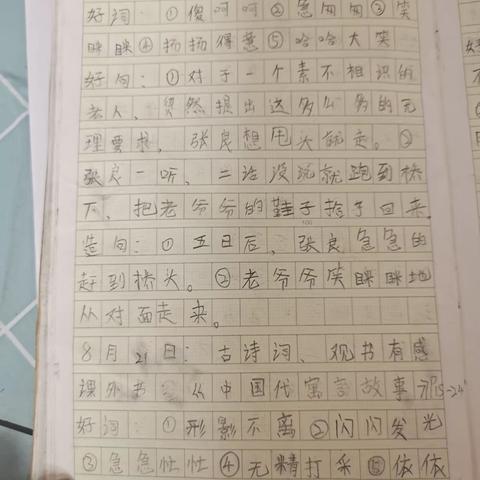 好词：①傻呵呵②急匆匆③笑
眯眯④扬扬得意⑤哈哈大笑
好句：①对于一个素不相识的
老人，竟然提出这多么多的无
理要求，张良想甩头就走。②
张良一听，二话没说就跑到桥
下，把老爷爷的鞋子捡了回来
造句：①五日后，张良急急的
赶到桥头。②老爷爷笑眯眯地
从对面走来。
8月21日：古诗词、观书有感
课外书 从中国代寓言故事
好词：①形影不离②闪闪发光
③急急忙忙④无精打采⑤依依